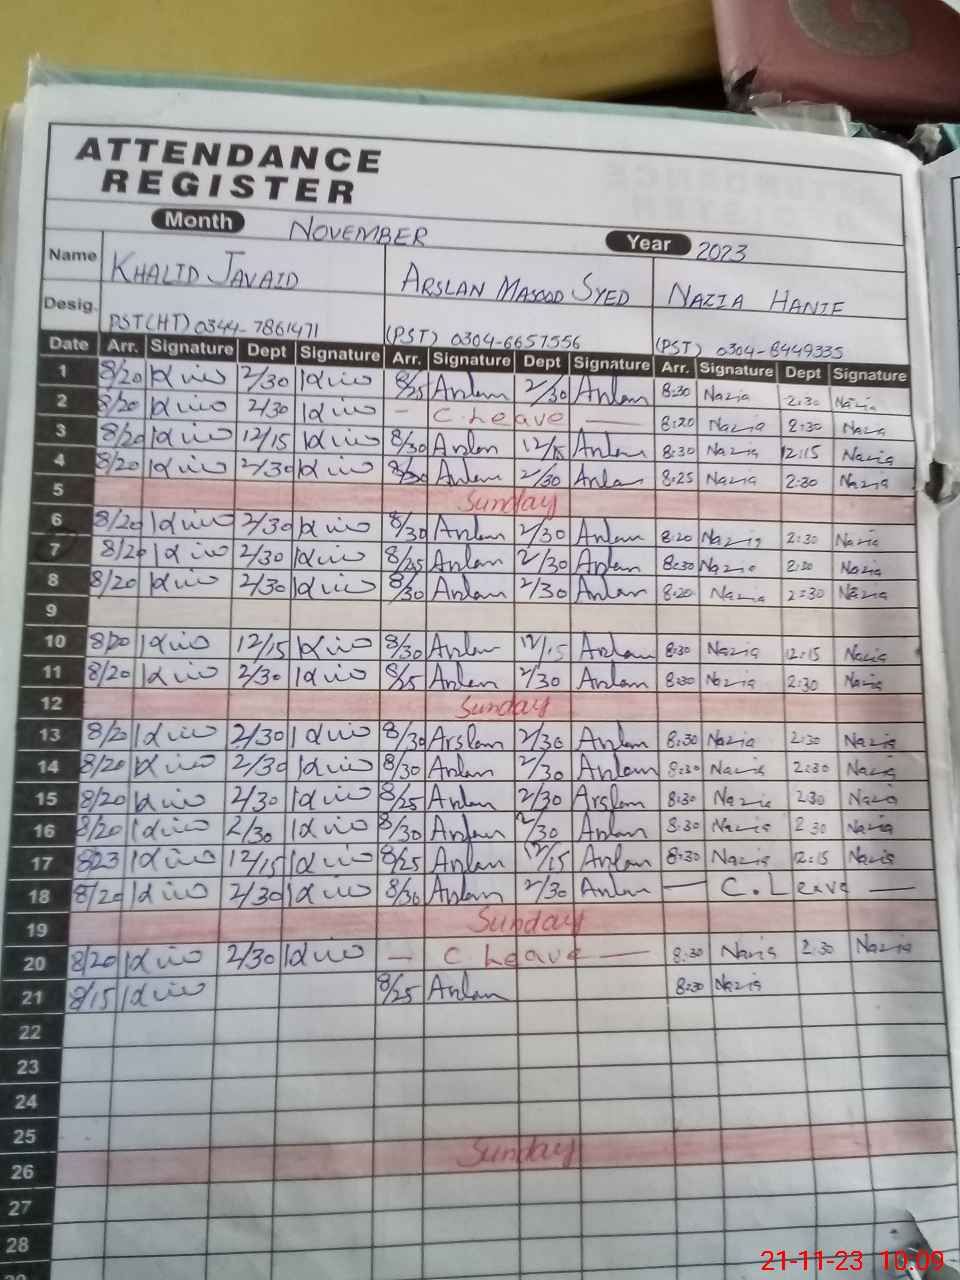 ATTENDANCE
REGISTER
Month NOVEMBER Year 2023
Name KHALID JAVAID ARSLAN MASOOD SYED NAZIA HANIF
Desig. PST(HT) 0344-7861471 (PST) 0304-6657556 (PST) 0304-8449335
Date Arr. Signature Dept Signature Arr. Signature Dept Signature Arr. Signature Dept Signature
1 8/20 2/30 8/25 Arslan 2/30 Arslan 8:30 Nazia 2:30 Nazia
2 8/20 2/30 – C. Leave — 8:20 Nazia 2:30 Nazia
3 8/20 12/15 8/30 Arslan 12/15 Arslan 8:30 Nazia 12:15 Nazia
4 8/20 2/30 8/30 Arslan 2/30 Arslan 8:25 Nazia 2:30 Nazia
5 Sunday
6 8/20 2/30 8/30 Arslan 2/30 Arslan 8:20 Nazia 2:30 Nazia
7 8/20 2/30 8/25 Arslan 2/30 Arslan 8:30 Nazia Nazia
8 8/20 2/30 8/30 Arslan 2/30 Arslan 8:20 Nazia 2:30 Nazia
9
10 8/20 12/15 8/30 Arslan 12/15 Arslan 8:30 Nazia 12:15 Nazia
11 8/20 2/30 8/25 Arslan 2/30 Arslan 8:30 Nazia 2:30 Nazia
12 Sunday
13 8/20 2/30 8/30 Arslan 2/30 Arslan 8:30 Nazia 2:30 Nazia
14 8/20 2/30 8/30 Arslan 2/30 Arslan 8:30 Nazia 2:30 Nazia
15 8/20 2/30 8/25 Arslan 2/30 Arslan 8:30 Nazia 2:30 Nazia
16 8/20 2/30 8/30 Arslan 2/30 Arslan 8:30 Nazia 2 30 Nazia
17 8/23 12/15 8/25 Arslan 12/15 Arslan 8:30 Nazia 12:15 Nazia
18 8/20 2/30 8/30 Arslan 2/30 Arslan — C. Leave —
19 Sunday
20 8/20 2/30 – C Leave — 8:30 Nazia 2:30 Nazia
21 8/15 8/25 Arslan 8:30 Nazia
22
23
24
25
26 Sunday
27
28
21-11-23 10:09